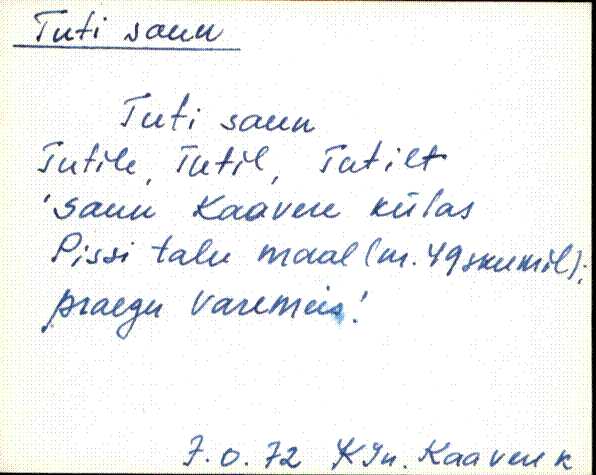 Tuti saun
Tuti saun
Tutile, Tutil, Tutilt
'saun Kaavere külas
Pissi talu maal (m.
praegu varemeis!
7.0.72 KJn. Kaavere k